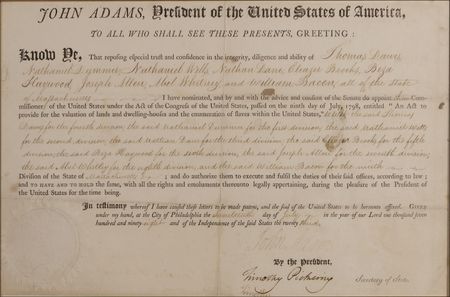 JOHN ADAMS, President of the United States of America,
TO ALL WHO SHALL SEE THESE PRESENTS, GREETING:
Know Ye, That reposing especial trust and confidence in the integrity, diligence and ability of Thomas Dawes
Nathaniel Dummer, Nathaniel Wells, Nathan Lane, Ebenezer Brooks, Beza
Hayward, Joseph Allen, Abel Whitney and William Bacon, all of the State
of Massachusetts I have nominated, and by and with the advice and consent of the Senate do appoint them Com-
missioners of the United States under the Act of the Congress of the United States, passed on the ninth day of July, 1798, entitled "An Act to
provide for the valuation of lands and dwelling-houses and the enumeration of slaves within the United States," the said Thomas
Dawes for the fourth division, the said Nathaniel Dummer for the first division, the said Nathaniel Wells
for the second division, the said Nathan Lane for the third division, the said Brooks for the fifth
division, the said Beza Hayward for the sixth division, the said Joseph Allen for the seventh division,
the said Abel Whitney for the eighth division, and the said William Bacon for the ninth
Division of the State of Massachusetts; and do authorise them to execute and fulfil the duties of their said offices, according to law;
and TO HAVE AND TO HOLD the same, with all the rights and emoluments thereunto legally appertaining, during the pleasure of the President
of the United States for the time being.
In testimony whereof I have caused these letters to be made patent, and the seal of the United States to be hereunto affixed. GIVEN
under my hand, at the City of Philadelphia the day of July in the year of our Lord one thousand seven
hundred and ninety eight and of the Independence of the said States the twenty third.
By the President,
Timothy Pickering Secretary of State.